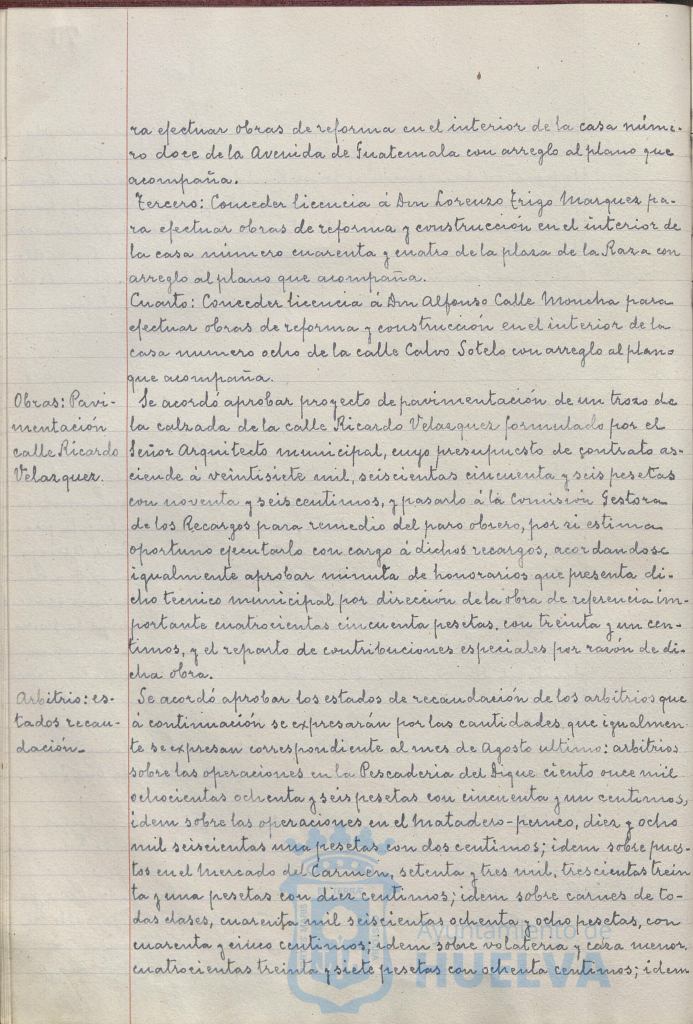 ra efectuar obras de reforma en el interior de la casa núme-
ro doce de la Avenida de Guatemala con arreglo al plano que
acompaña.
Tercero: Conceder licencia á Don Lorenzo Trigo Marquez pa-
ra efectuar obras de reforma y construcción en el interior de
la casa número cuarenta y cuatro de la plaza de la Raza con
arreglo al plano que acompaña.
Cuarto: Conceder licencia á Don Alfonso Calle Moncha para
efectuar obras de reforma y construcción en el interior de la
casa numero ocho de la calle Calvo Sotelo con arreglo al plano
que acompaña.
Obras: Pavi-
mentación
calle Ricardo
Velazquez.
Se acordó aprobar proyecto de pavimentación de un trozo de
la calzada de la calle Ricardo Velazquez formulado por el
Señor Arquitecto municipal, cuyo presupuesto de contrato as-
ciende á veintisiete mil, seiscientas cincuenta y seis pesetas
con noventa y seis centimos, y pasarlo á la Comisión Gestora
de los Recargos para remedio del paro obrero, por si estima
oportuno ejecutarlo con cargo á dichos recargos, acordandose
igualmente aprobar minuta de honorarios que presenta di-
cho tecnico municipal por dirección de la obra de referencia im-
portante cuatrocientas cincuenta pesetas, con treinta y un cen-
timos, y el reparto de contribuciones especiales por razón de di-
cha obra.
Arbitrio: es-
tados recau-
dación.-
Se acordó aprobar los estados de recaudación de los arbitrios que
á continuación se expresarán por las cantidades que igualmen-
te se expresan correspondiente al mes de Agosto ultimo: arbitrios
sobre las operaciones en la Pescaderia del Dique ciento once mil
ochocientas ochenta y seis pesetas con cincuenta y un centimos,
idem sobre las operaciones en el matadero-perneo, diez y ocho
mil seiscientas una pesetas con dos centimos; idem sobre pues-
tos en el Mercado del Carmen, setenta y tres mil, trescientas trein
ta y una pesetas con diez centimos; idem sobre carnes de to-
das clases, cuarenta mil seiscientas ochenta y ocho pesetas, con
cuarenta y cinco centimos; idem sobre volateria y caza menor,
cuatrocientas treinta y siete pesetas con ochenta centimos; idem
Ayuntamiento de
HUELVA